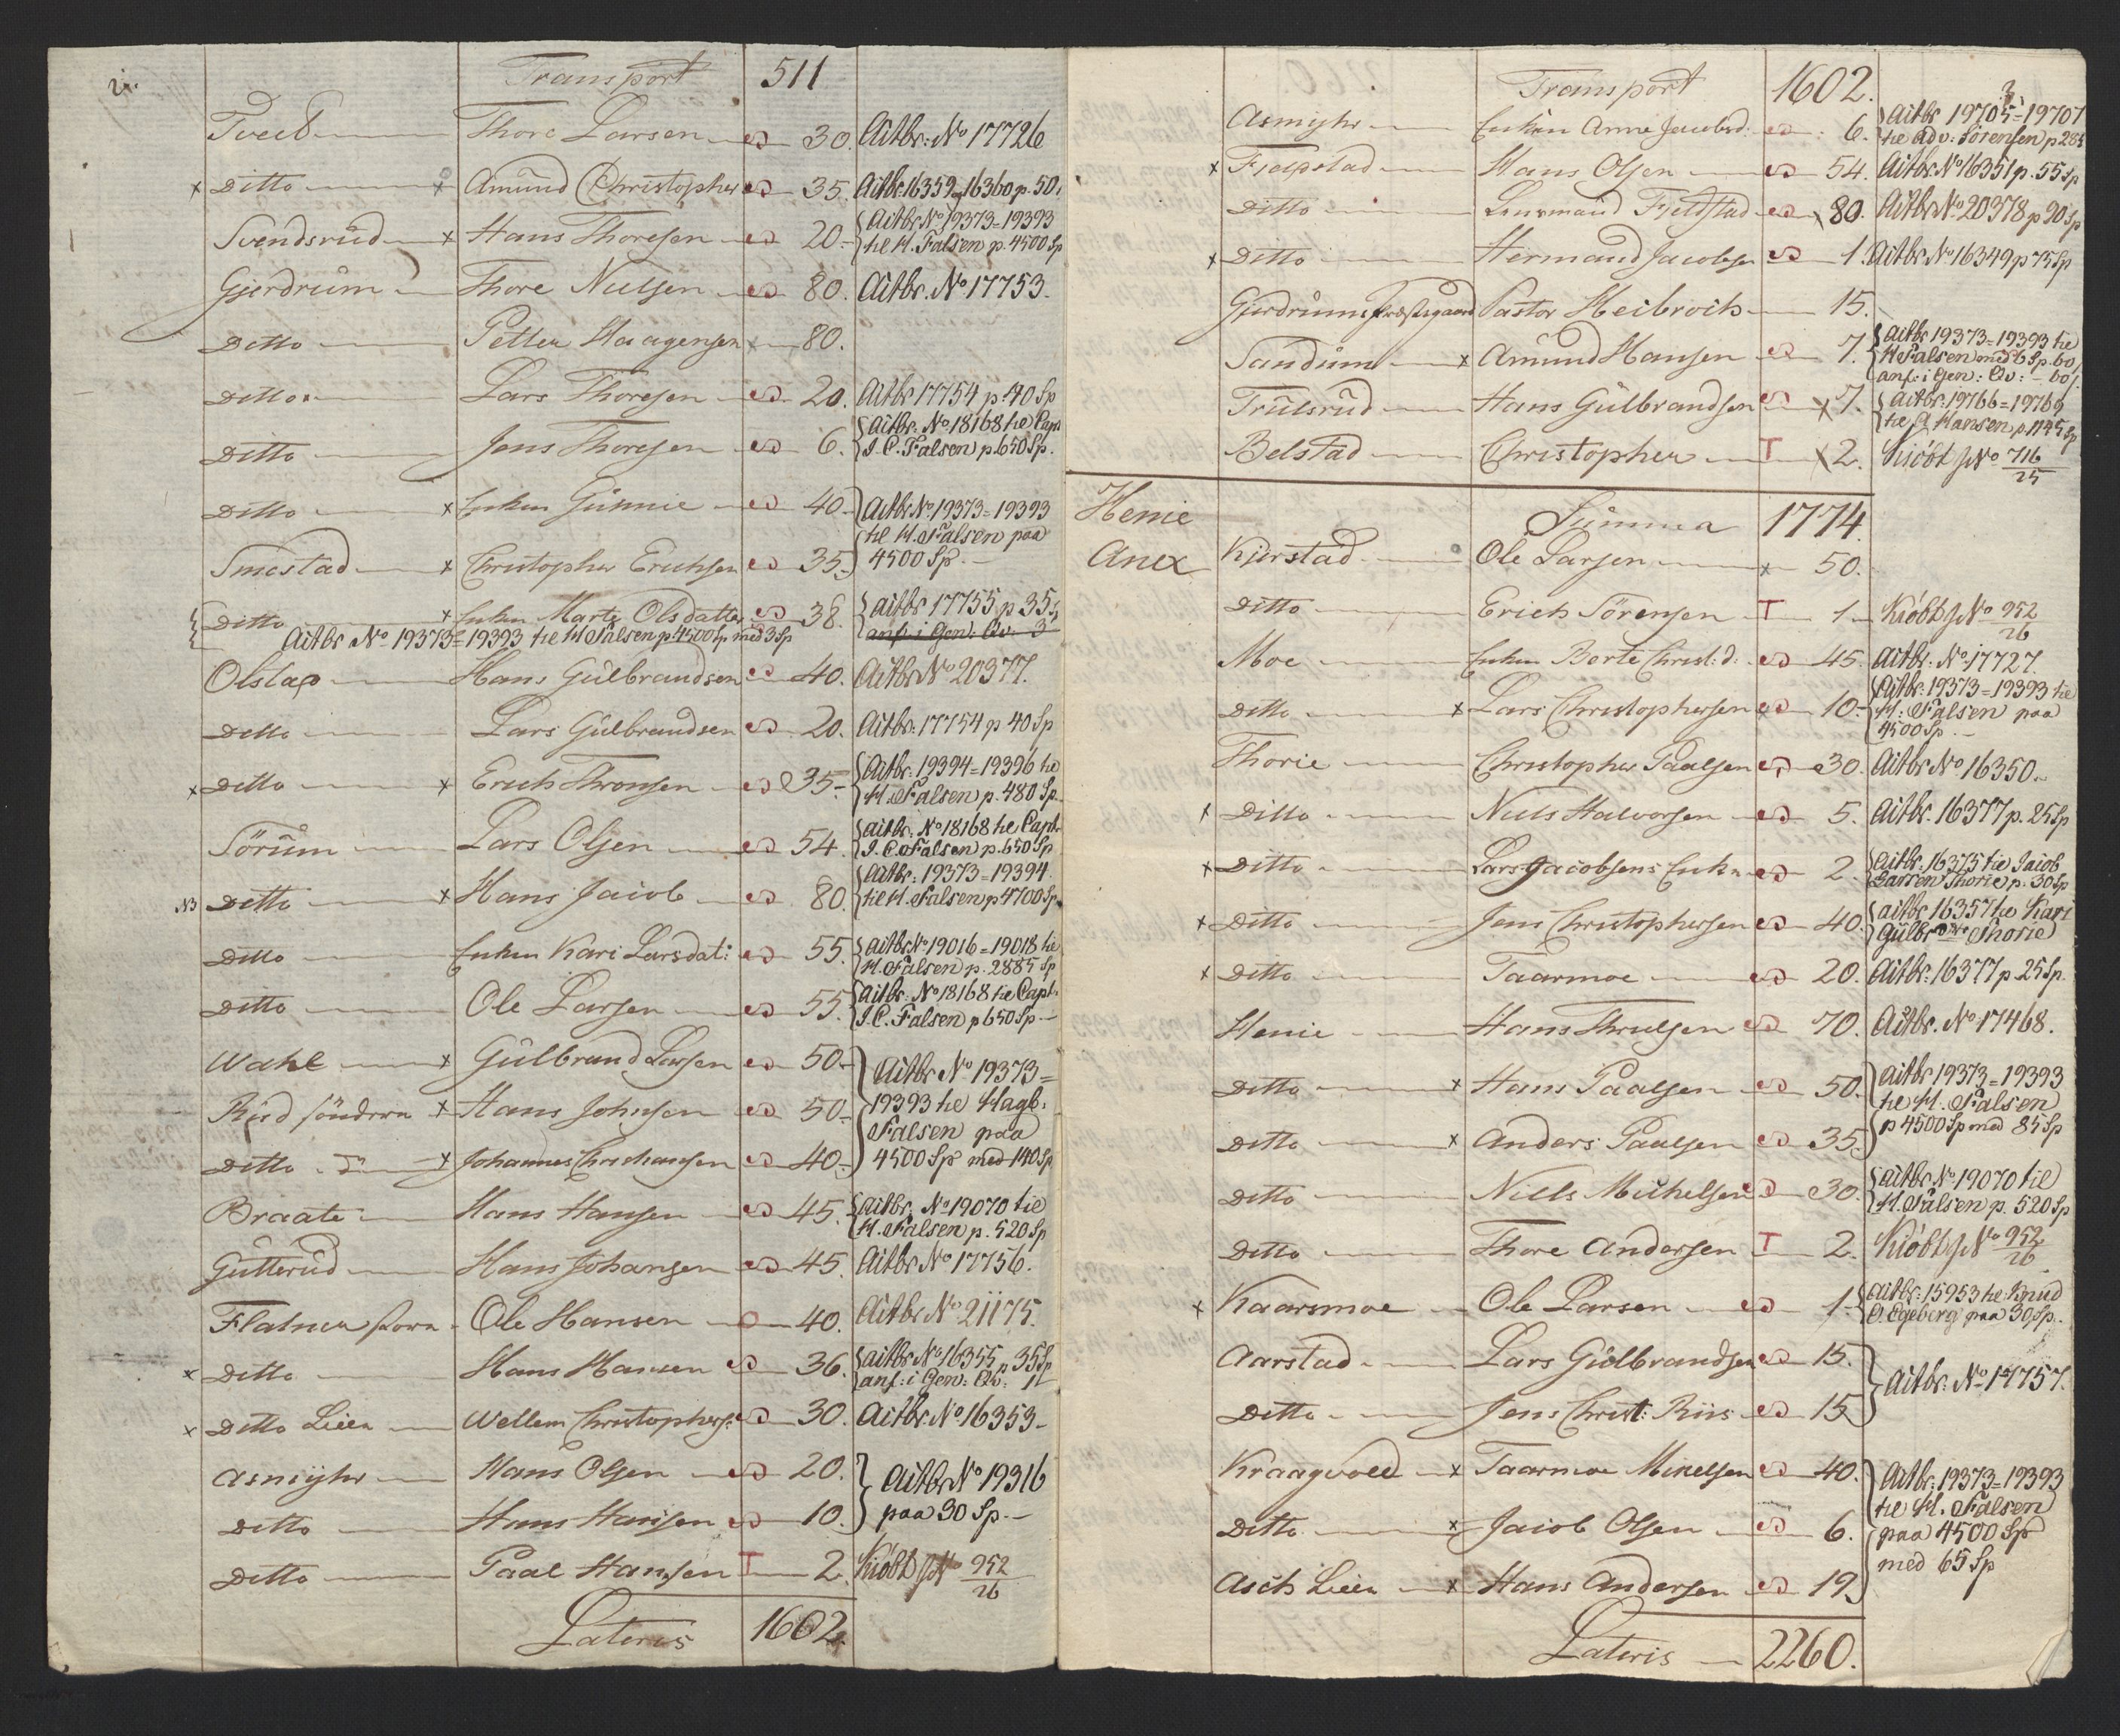 2.
Transport 511
Tveed Thore Larsen 30. Aitbr: No 17726
x Ditto x Amund Christopher 35. Aitbr 16359=16360 p. 50.
Svendsrud x Hans Thoresen 20.- Aitbr No 19373=19393
til H. Falsen p. 4500 Sp
Gjerdrum Thore Nielsen 80. Aitbr. No 17753.
Ditto Petter Haagensen x 80.
Ditto Lars Thoresen 20. Aitbr 17754 p. 40 Sp
Ditto Jens Thoresen 6. Aitbr. No 18168 til Capt
J. C. Falsen p 650 Sp.
Ditto x Enken Gunnie 40.- Aitbr No 19373=19393
til H. Falsen paa
Smestad x Christopher Erichsen 35. 4500 Sp.-
Ditto x Enken Marte Olsdatter 38. aitbr 17755 p 35 Sp
anf: i Gen: Qv: 3
Aitbr No 19373=19393 til H Falsen p. 4500 Sp med 3 Sp
Olstad Hans Gulbrandsen 40. Aitbr No 20377.
Ditto Lars Gulbrandsen 20. Aitbr: 17754 p 40 Sp
x Ditto x Erich Thronsen 35.- Aitbr. 19394=19396 til
H. Falsen p. 480 Sp.
Sörum Lars Olsen 54. aitbr: No 18168 til Capt
J. C. Falsen p. 650 Sp
NB Ditto x Hans Jacob 80. Aitbr: 19373=19394.
til H. Falsen p 4700 Sp.
Ditto Enken Kari Larsdat: 55. aitbr No 19016=19018 til
H. Falsen p. 2885 Sp
Ditto Ole Larsen 55. Aitbr: No 18168 til Capt.
J. C. Falsen p 650 Sp.-
Wahl x Gulbrand Larsen 50.- Aitbr No 19373=
Rud söndern x Hans Johnsen 50.- 19393 til Hagb:
Falsen paa
Ditto do x Johannes Christiansen 40.- 4500 Sp med 140 Sp
Braate Hans Hansen 45. aitbr. No 19070 til
H. Falsen p. 520 Sp
Gutterud Hans Johansen 45. Aitbr No 17756.
Flatner Ole Hansen 40. Aitbr No 21175.
x Ditto Hans Hansen 36. aitbr No 16355 p 35 Sp
anf: i Gen: Qv: 1
x Ditto Eier Wellem Christophers: 30. Aitbr. No 16353-
Asmyhr Hans Olsen 20. Aitbr No 19316
Ditto Hans Hansen 10. paa 30 Sp.-
Ditto Paal Hansen T 2. Kiöbt No 952/26
Lateris 1602.
3
Transport 1602.
Asmyhr Enken Anne Jacobsd: 6. Aitbr 19705=19707
til Adv: Sörensen p 285
x Fjeldstad Hans Olsen 54. Aitbr No 16351 p. 55 Sp
Ditto Lensmand Fjeldstad x 80. Aitbr No 20378 p 90 Sp
x Ditto Hermand Jacobsen 1. Aitbr No 16349 p 75 Sp
Gjerdrums Præstegaard Pastor Heibroch 15.
Sandum x Amund Hansen 7. Aitbr 19373=19393 til
H Falsen med 6 Sp. 60
anf: i Gen: Qv: - 60
Trulsrud Hans Gulbrandsen x 7. Aitbr: 19766=19769
til A Hansen p. 1745 Sp
Belstad Christopher T x 2. Kiöbt No 716/25
Summa 1774.
Henie
Anex Kjerstad Ole Larsen x 50.
Ditto Erich Sörensen T 1 Kiöbt No 952/26
Moe Enken Berte Christ: d: 45. aitbr: No 17727.
Ditto x Lars Christophersen 10.- Aitbr: 19373=19393 til
H: Falsen paa
4500 Sp.-
Thorie Christopher Paalsen 30. Aitbr No 16350.
x Ditto Niels Halvorsen 5. Aitbr. 16377 p. 25 Sp
x Ditto Lars Jacobsens Enke 2. Aitbr: 16375 til Jacob
Larsen Thorie p. 30 Sp
x Ditto Jens Christophersen 40. aitbr 16357 til Kari
Gulbr Thorie
x Ditto Taarmoe 20. Aitbr: 16377 p 25 Sp.
Henie Hans Thrulsen 70. Aitbr. No 17468.
Ditto x Hans Paalsen 50. Aitbr 19373=19393
til H. Falsen
Ditto x Anders Paalsen 35. p 4500 Sp med 85 Sp
Ditto Niels Michelsen 30. aitbr No 19070 til
H. Falsen p. 520 Sp
Ditto Thore Andersen T 2. Kiöbt No 952/26
x Kaarsmoe Ole Larsen 1- aitbr: 15953 til Knud
O. Egeberg paa 30 Sp.
Aarstad Lars Gulbrandsen 15. Aitbr. No 17757.
Ditto Jens Christ: Riis 15
Kraagvold x Taarmoe Mikelsen 40. Aitbr: 19373=19393
til H. Falsen
Ditto x Jacob Olsen 6. paa 4500 Sp
med 65 Sp
Asch Eier x Hans Andersen 19
Lateris 2260.